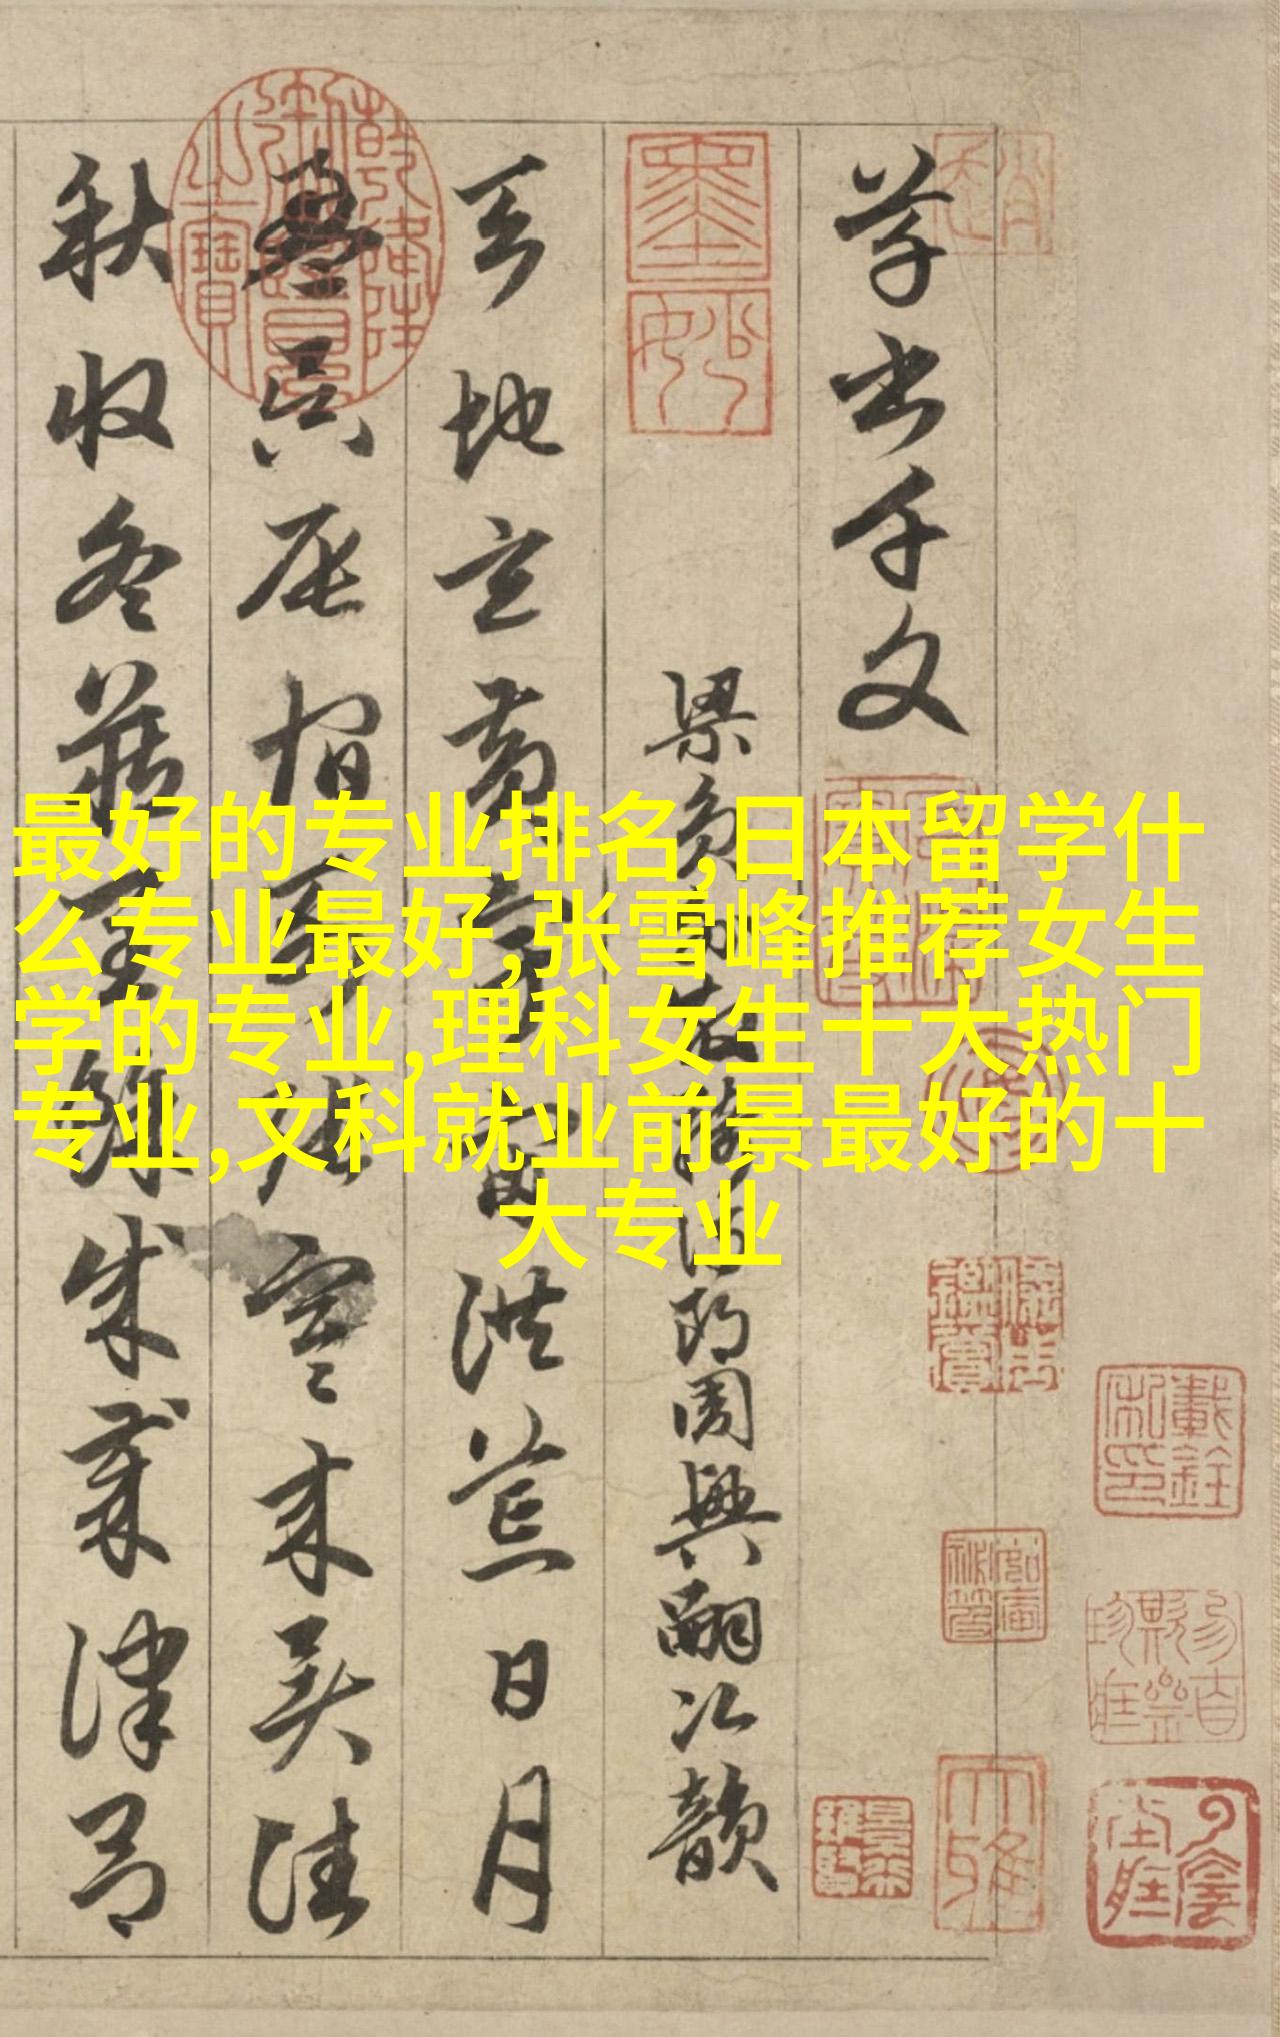 草書千文
墨妙
梁員外散騎侍郎周興嗣次韻
天地玄黄宇宙洪荒日月
盈昃辰宿列張寒来暑往
秋收冬藏閏餘成歲律吕
大雅
最好的专业排名,日本留学什
么专业最好,张雪峰推荐女生
学的专业,理科女生十大热门
专业,文科就业前景最好的十
大专业